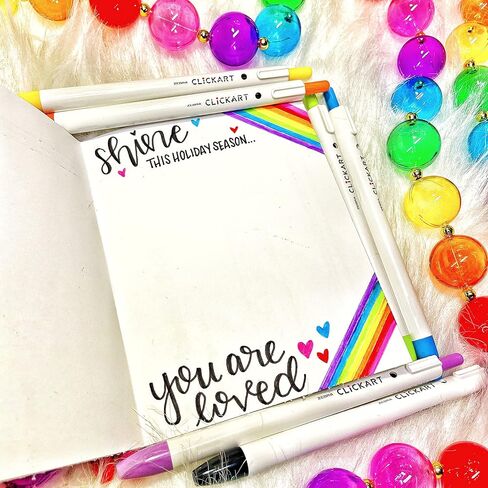 ZEBRA CLICKART
ZEBRA CLICKART
shine
THIS HOLIDAY SEASON...
CLICKART
CLICKART
you are
loved
ZEBRA CLICKART
ZEBRA CLICKART